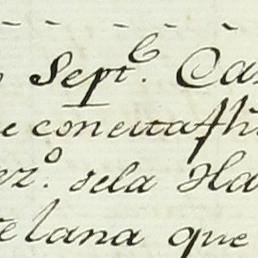 Septe. Ca
e concitaflí
ez.o dela Ha
telana que